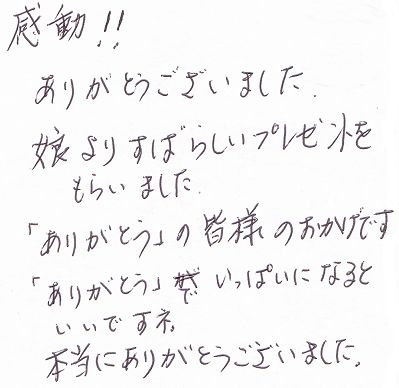 感動!!
ありがとうございました.
娘よりすばらしいプレゼントを
もらいました.
「ありがとう」の皆様のおかげです
「ありがとう」でいっぱいになると
いいですネ。
本当にありがとうございました。